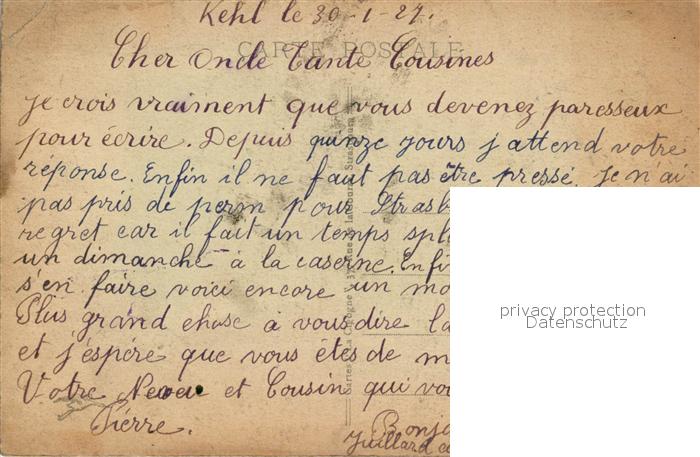 Kehl le 30-1-27.
CARTE POSTALE
Cher Oncle Tante Cousines
je crois vraiment que vous devenez paresseux
pour écrire. Depuis quinze jours j'attend votre
réponse. Enfin il ne faut pas être pressé. Je n'ai
pas pris de perm pour Strasb
regret car il fait un temps spl
un dimanche à la caserne. Enfi
s'en faire voici encore un mo
Plus grand chose à vous dire la
et j'éspére que vous étes de m
Votre Neveu et Cousin qui vou
Pierre.
Bonjo
Juillard
privacy protection
Datenschutz